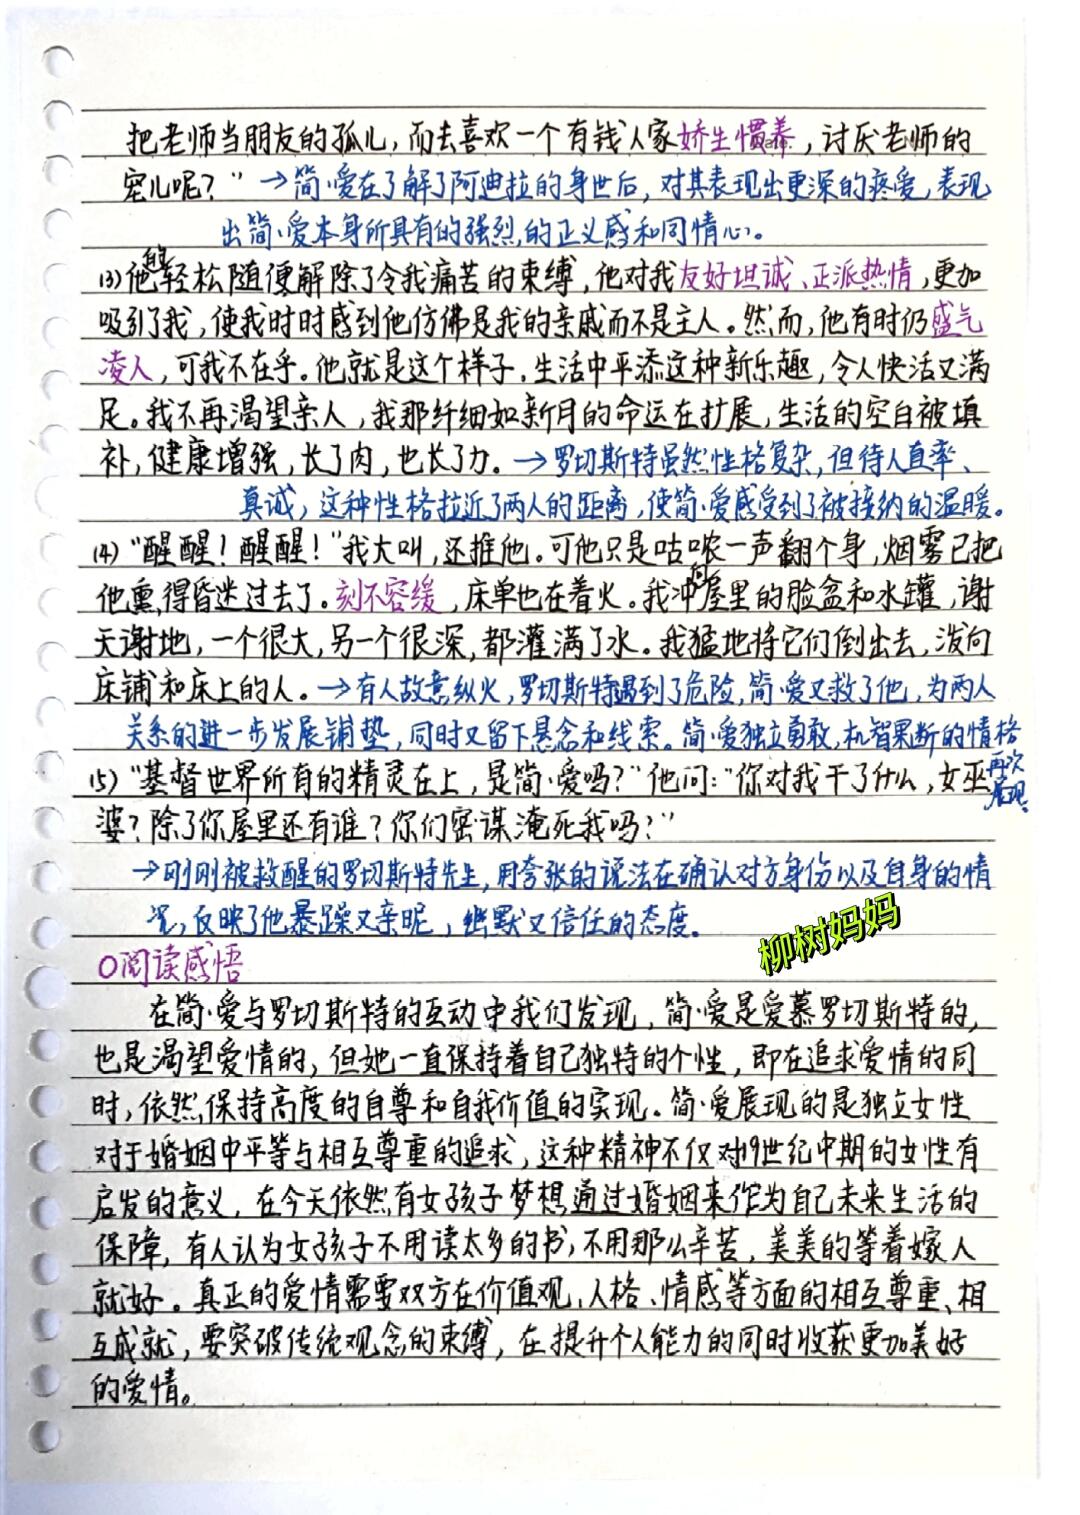 把老师当朋友的孤儿，而去喜欢一个有钱人家娇生惯养，讨厌老师的
宠儿呢？”→简·爱在了解了阿迪拉的身世后，对其表现出更深的疼爱，表现
出简·爱本身所具有的强烈的正义感和同情心。
13)他的轻松随便解除了令我痛苦的束缚，他对我友好坦诚、正派热情，更加
吸引了我，使我时时感到他仿佛是我的亲戚而不是主人。然而，他有时仍盛气
凌人，可我不在乎。他就是这个样子。生活中平添这种新乐趣，令人快活又满
足。我不再渴望亲人，我那纤细如新月的命运在扩展，生活的空白被填
补，健康增强，长了肉，也长了力。→罗切斯特虽然性格复杂，但待人直率、
真诚，这种性格拉近了两人的距离，使简·爱感受到了被接纳的温暖。
14)“醒醒！醒醒！”我大叫，还推他。可他只是咕哝一声翻个身，烟雾已把
他熏得昏迷过去了。刻不容缓，床单也在着火。我冲向屋里的脸盆和水罐，谢
天谢地，一个很大，另一个很深，都灌满了水。我猛地将它们倒出去，泼向
床铺和床上的人。→有人故意纵火，罗切斯特遇到了危险，简·爱又救了他，为两人
关系的进一步发展铺垫，同时又留下悬念和线索。简·爱独立勇敢，机智果断的情格
再次展现。
15)“基督世界所有的精灵在上，是简·爱吗？”他问：“你对我干了什么，女巫
婆？除了你屋里还有谁？你们密谋淹死我吗？”
→刚刚被救醒的罗切斯特先生，用夸张的说法在确认对方身份以及自身的情
况，反映了他暴躁又亲昵，幽默又信任的态度。
柳树妈妈
○阅读感悟
在简·爱与罗切斯特的互动中我们发现，简·爱是爱慕罗切斯特的，
也是渴望爱情的，但她一直保持着自己独特的个性，即在追求爱情的同
时，依然保持高度的自尊和自我价值的实现。简·爱展现的是独立女性
对于婚姻中平等与相互尊重的追求，这种精神不仅对19世纪中期的女性有
启发的意义，在今天依然有女孩子梦想通过婚姻来作为自己未来生活的
保障，有人认为女孩子不用读太多的书，不用那么辛苦，美美的等着嫁人
就好。真正的爱情需要双方在价值观、人格、情感等方面的相互尊重、相
互成就，要突破传统观念的束缚，在提升个人能力的同时收获更加美好
的爱情。